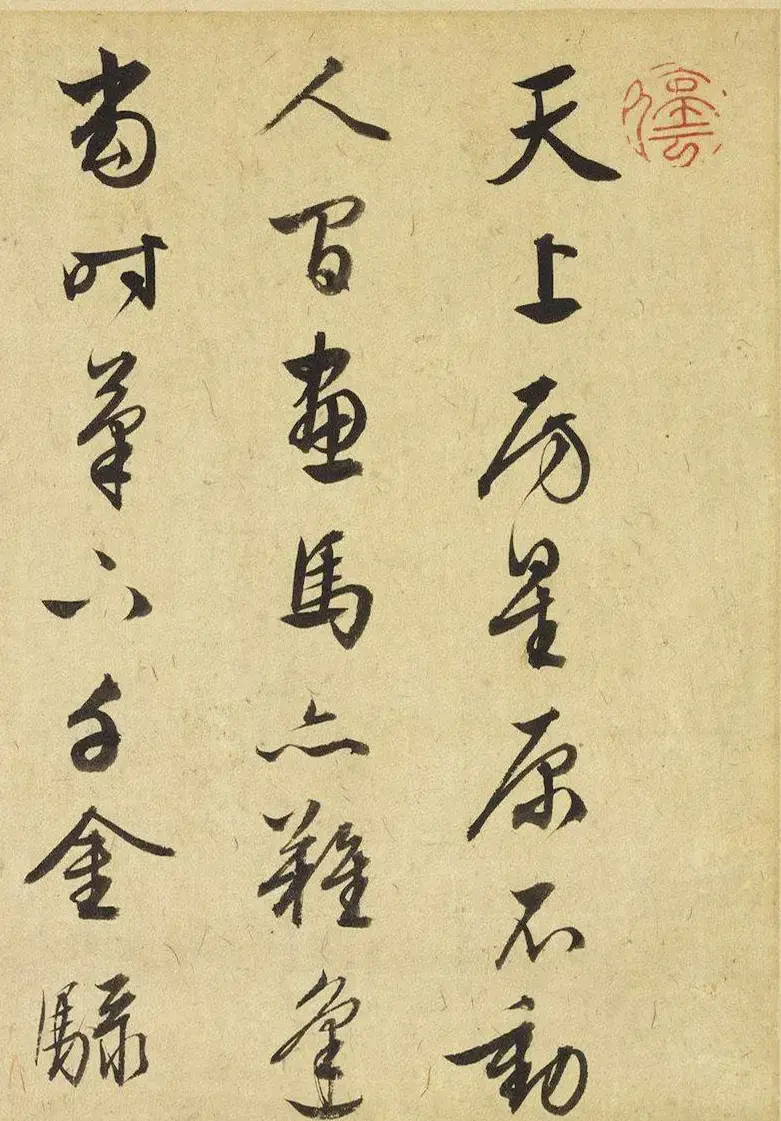 天上房星原不動
人間畫馬亦難逢
當時筆下千金騄